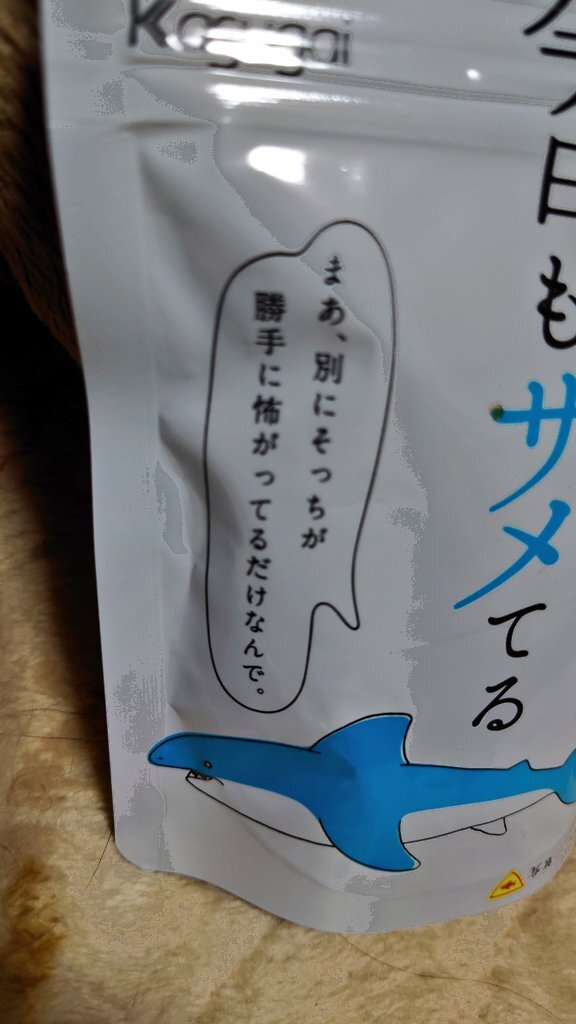 Kasugai
今日もサメてる
まあ、別にそっちが
勝手に怖がってるだけなんで。